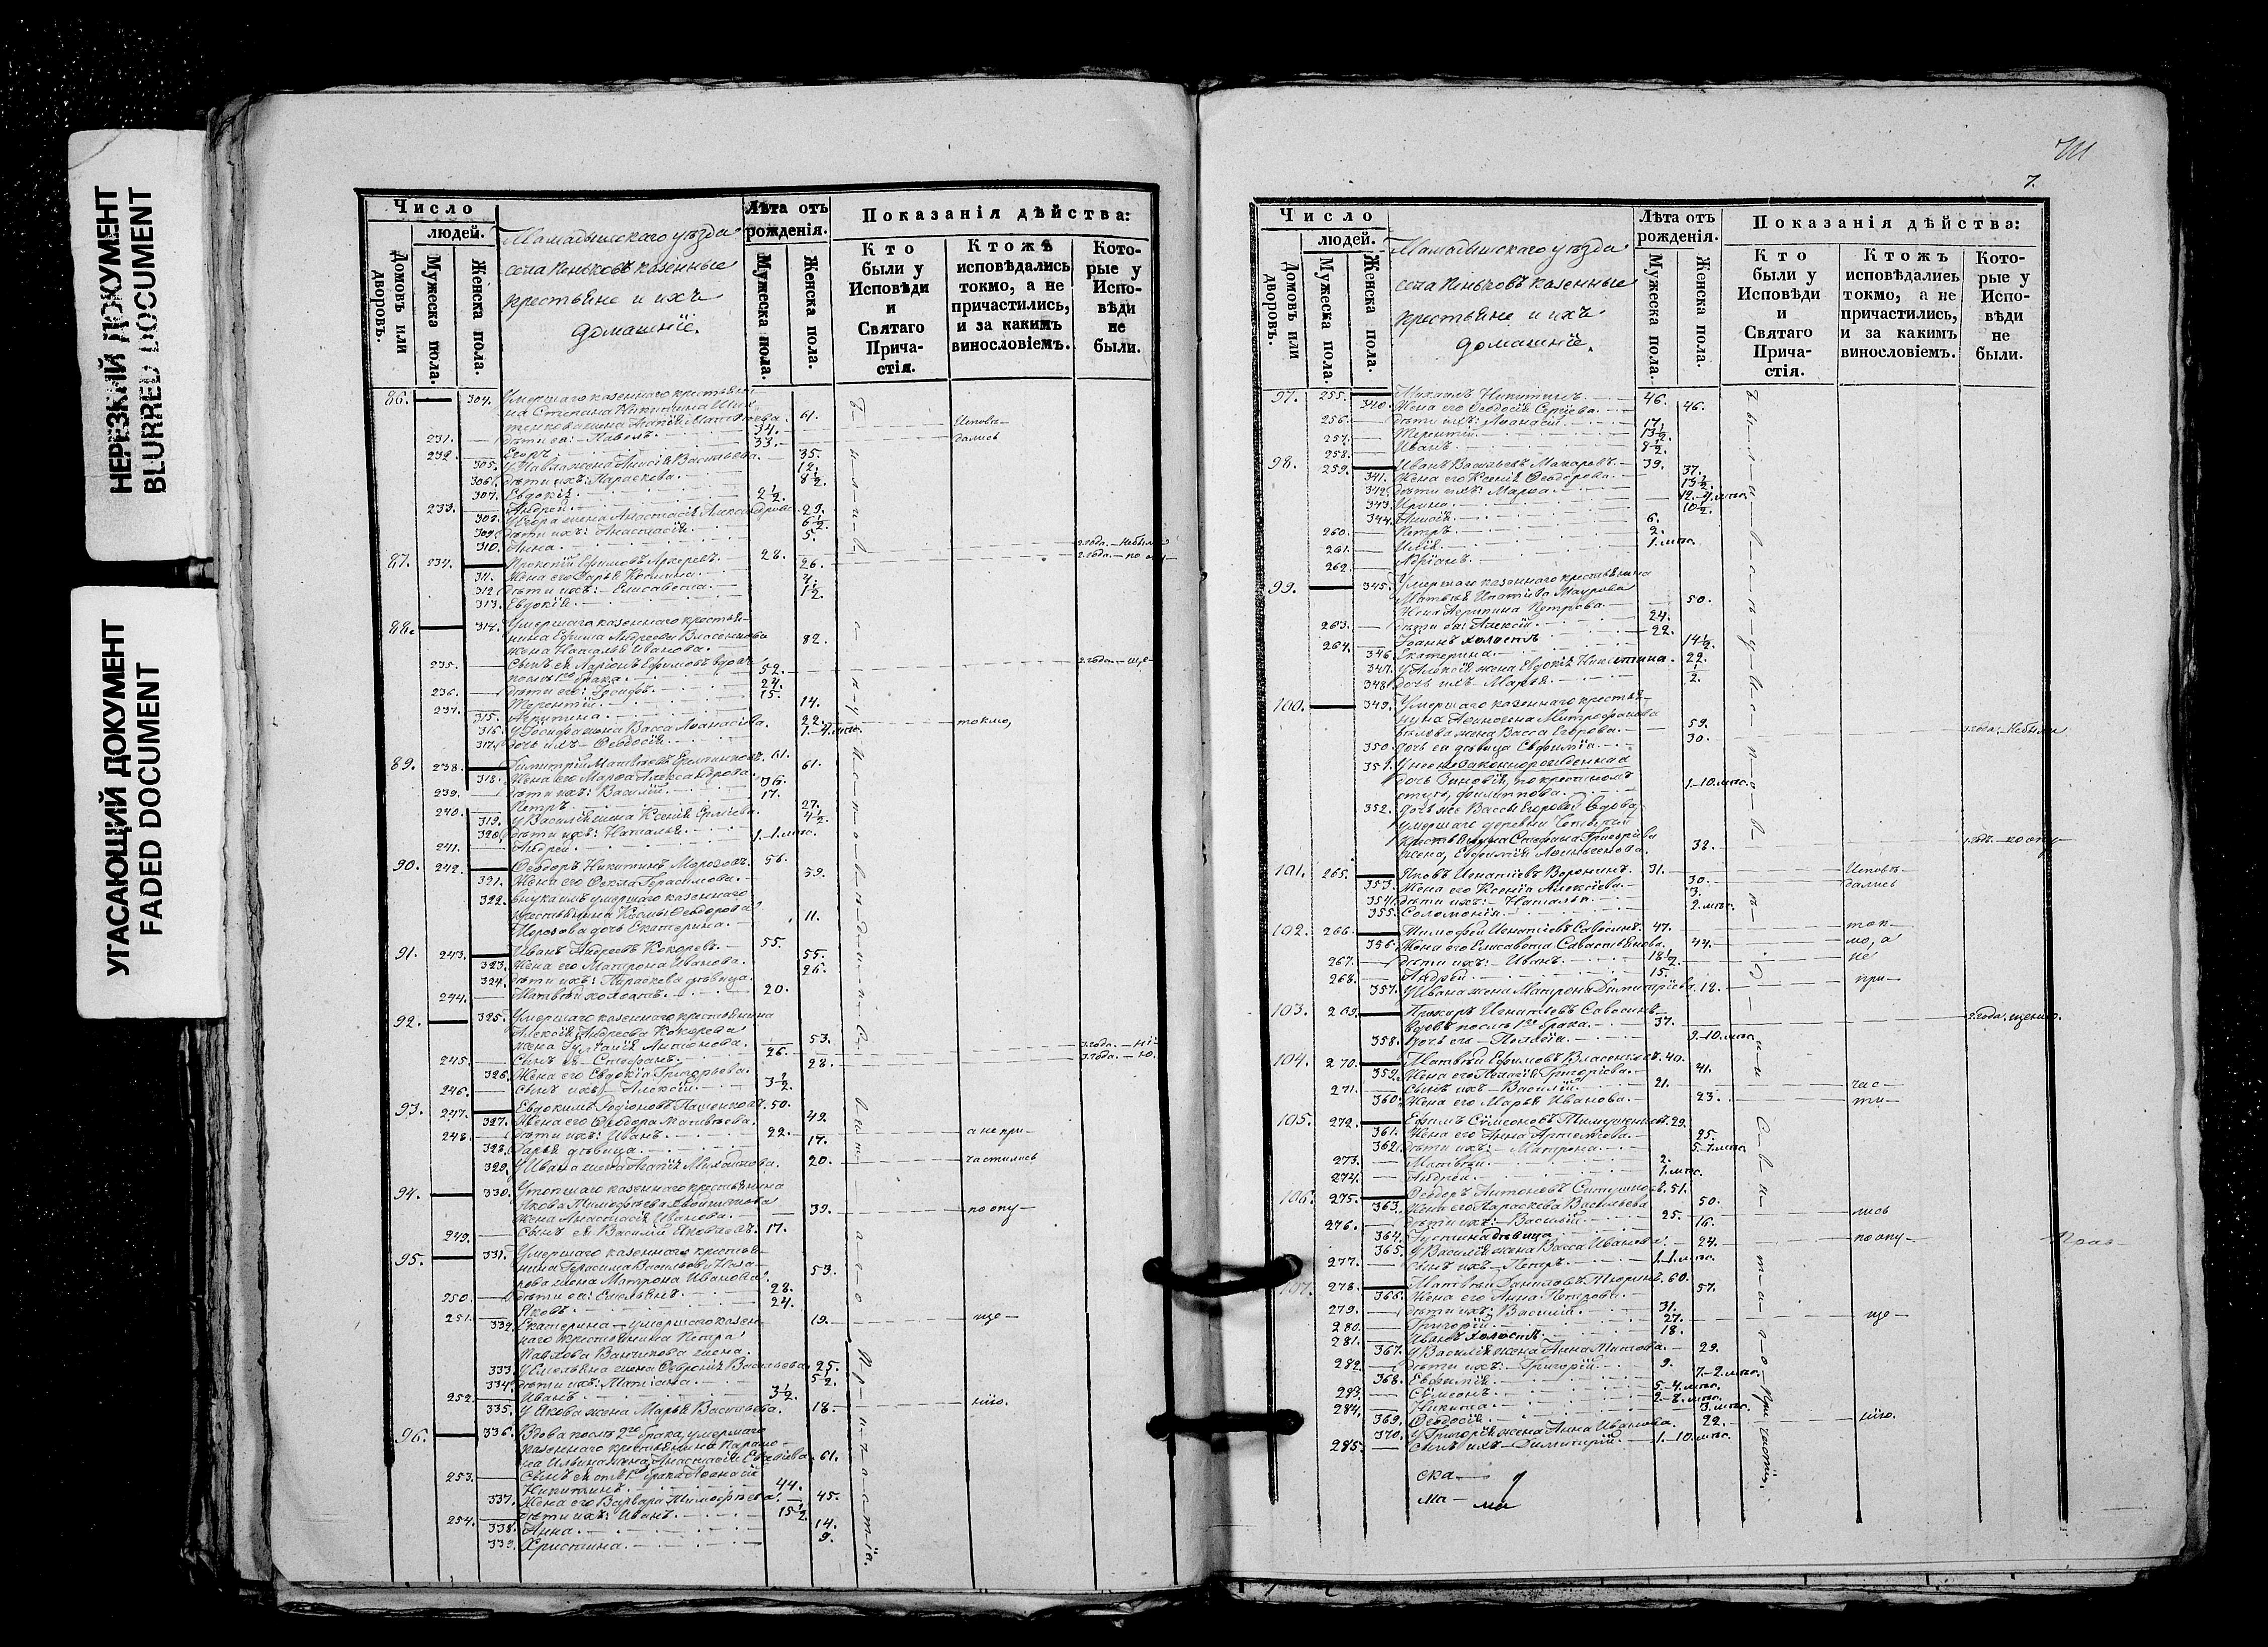 НЕРЕЗКИЙ ДОКУМЕНТ
BLURRED DOCUMENT
УГАСАЮЩИЙ ДОКУМЕНТ
FADED DOCUMENT
Число
людей.
Домовъ или дворовъ.
Мужеска пола.
Женска пола.
Мамадышскаго уѣзда
села казенные
крестьяне и ихъ
домашніе.
Лѣта отъ рожденія.
Мужеска пола.
Женска пола.
Показанія дѣйства:
Кто были у Исповѣди и Святаго Причастія.
Ктожъ исповѣдались токмо, а не причастились, и за какимъ винословіемъ.
Которые у Исповѣди не были.
86. 304. Умершаго казеннаго крестьяни-
на Степана Никитина
61.
231. дѣти ея: Павелъ. 34.
232. Егоръ. 33.
305. У Павла жена Анисія Васильева. 35.
306. дѣти ихъ: Параскева. 12.
307. Евдокія. 8½.
233. Андрей. 2½.
308. У Егора жена Анастасія Александрова. 29.
309. дѣти ихъ: Анастасія. 6½.
310. Анна. 5.
87. 234. Прокопій Ефимовъ 28.
311. Жена его Дарья 26.
312. дѣти ихъ: Елисавета. 4.
313. Евдокія. 1½.
88. 314. Умершаго казеннаго крестья-
нина Ефима Андреева Власенкова
жена Наталья Иванова. 82.
235. Сынъ ея Ларіонъ Ефимовъ вдовъ
послѣ 1го брака. 52.
236. дѣти его: 24.
237. Терентій. 15.
315. Агрипина. 14.
316. жена Васса Аѳанасіева. 22.
317. дочь ихъ Ѳеодосія. 1.-4.мѣс.
89. 238. Димитрій Матвѣевъ 61.
318. Жена его Марѳа Александрова. 61.
239. дѣти ихъ: Василій. 36.
240. Петръ. 17.
319. У Василія жена Ксенія 27.
320. дѣти ихъ: Наталья. 4½.
241. Андрей. 1.-1.мѣс.
90. 242. Ѳеодоръ Никитинъ Морозовъ. 56.
321. Жена его Ѳекла Герасимова. 59.
322. внука имъ умершаго казеннаго
крестьянина Космы Ѳеодорова
Морозова дочь Екатерина. 11.
91. 243. Иванъ Андреевъ Кокоревъ. 55.
323. Жена его Матрона Иванова. 55.
324. дѣти ихъ: Параскева дѣвица. 26.
244. Матвѣй холостъ. 20.
92. 325. Умершаго казеннаго крестьянина
Алексія Андреева Кокорева
жена Антонова. 53.
245. Сынъ ея Стефанъ. 26.
326. Жена его Евдокія Григорьева. 28.
246. Сынъ ихъ Алексій. 3½.
93. 247. Евдокимъ Родіоновъ 50.
327. Жена его Ѳеодора Матвѣева. 49.
248. дѣти ихъ: Иванъ. 22.
328. Дарья дѣвица. 17.
329. У Ивана жена Агапія 20.
94. 330. Утопшаго казеннаго крестьянина
Якова Тимоѳеева
жена Анастасія Иванова. 39.
249. Сынъ ея Василій Яковлевъ. 17.
95. 331. Умершаго казеннаго крестья-
нина Герасима Васильева
жена Матрона Иванова. 53.
250. дѣти ея: Емельянъ. 28.
251. Яковъ. 24.
332. Екатерина умершаго казен-
наго крестьянина Петра
Павлова жена. 19.
333. У Емельяна жена Васильева. 25.
334. дѣти ихъ: 5½.
252. Иванъ. 3½.
335. У Якова жена Марья Васильева. 18.
96. 336. Вдова послѣ 2го брака, умершаго
казеннаго крестьянина
Анастасія 61.
253. Сынъ ея отъ 1го брака Аѳанасій
Никитинъ. 44.
337. Жена его Варвара Тимоѳеева. 45.
254. дѣти ихъ: Иванъ. 15½.
338. Анна. 14.
339. Христина. 9.
токмо,
а не при-
частились
по опу-
ще-
нію.
7.
Число
людей.
Домовъ или дворовъ.
Мужеска пола.
Женска пола.
Мамадышскаго уѣзда
села казенные
крестьяне и ихъ
домашніе.
Лѣта отъ рожденія.
Мужеска пола.
Женска пола.
Показанія дѣйства:
Кто были у Исповѣди и Святаго Причастія.
Ктожъ исповѣдались токмо, а не причастились, и за какимъ винословіемъ.
Которые у Исповѣди не были.
97. 255. Михаилъ Никитинъ. 46.
340. Жена его Ѳеодосія Сергіева. 46.
256. дѣти ихъ: Аѳанасій. 17.
257. Терентій. 13½.
258. Иванъ. 8½.
98. 259. Иванъ Васильевъ Макаровъ. 39.
341. Жена его Ксенія Ѳеодорова. 37.
342. дѣти ихъ: Марѳа. 13½.
343. Ирина. 12.-4.мѣс.
344. Анисія. 10½.
260. Петръ. 6.
261. Илія. 2.
262. Адріанъ. 1.мѣс.
99. 345. Умершаго казеннаго крестьянина
Матвѣя Ипатіева
жена Агрипина Петрова. 50.
263. дѣти ея: Алексій. 24.
264. Іоаннъ холостъ 22.
346. Екатерина. 14½.
347. У Алексія жена Евдокія Никитина. 22.
348. дочь ихъ Марья. ½.
100. 349. Умершаго казеннаго крестья-
нина Митрофанова
жена Васса Егорова. 59.
350. дочь ея дѣвица Евфимія. 30.
351. У нее незаконнорожденная
дочь Зиновія, по крестномъ
отцѣ, Филиппова. 1.-10.мѣс.
352. дочь же Вассы Егоровой вдова
умершаго деревни
крестьянина Стефана Григорьева
жена, Евфимія 38.
101. 265. Яковъ Игнатіевъ Воронинъ. 31.
353. Жена его Ксенія Алексіева. 30.
354. дѣти ихъ: Наталья. 3.
355. Соломонія. 2.мѣс.
102. 266. Тимофей Игнатіевъ Савосинъ. 47.
356. Жена его Елисавета Савастьянова. 44.
267. дѣти ихъ: Иванъ. 18½.
268. Андрей. 15.
357. У Ивана жена Матрона Димитріева. 18.
103. 269. Прохоръ Игнатіевъ Савосинъ
вдовъ послѣ 1го брака. 37.
358. дочь его Пелагія. 9.-10.мѣс.
104. 270. Матвѣй Ефимовъ Власенковъ. 40.
359. Жена его Пелагія Григоріева. 41.
271. Сынъ ихъ Василій. 21.
360. Жена его Марья Иванова. 23.
105. 272. Ефимъ Сѵмеоновъ 29.
361. Жена его Анна Артемьева. 25.
362. дѣти ихъ: Матрона. 5.-7.мѣс.
273. Матвѣй. 2.
274. Андрей. 1.мѣс.
106. 275. Ѳеодоръ Антоновъ 51.
363. Жена его Параскева Васильева 50.
276. дѣти ихъ: Василій. 25.
364. Іустина дѣвица. 16.
365. У Василія жена Васса Иванова. 24.
277. Сынъ ихъ Петръ. 1.-1.мѣс.
107. 278. Матвѣй Даниловъ Тюринъ. 60.
366. Жена его Анна Петрова. 57.
279. дѣти ихъ: Василій. 31.
280. Григорій. 27.
281. Иванъ холостъ. 18.
367. У Василія жена Анна 29.
282. дѣти ихъ: Григорій. 9.
368. Евфимія. 7.-2.мѣс.
283. Сѵмеонъ. 5.-4.мѣс.
284. Никита. 2.-8.мѣс.
369. Ѳеодосія. 3.мѣс.
370. У Григорія жена Анна Иванова. 22.
285. Сынъ ихъ Димитрій. 1.-10.мѣс.
Исповѣ-
дались
ток-
мо, а
не
при-
час-
ти-
лись
по опу-
ще-
нію.